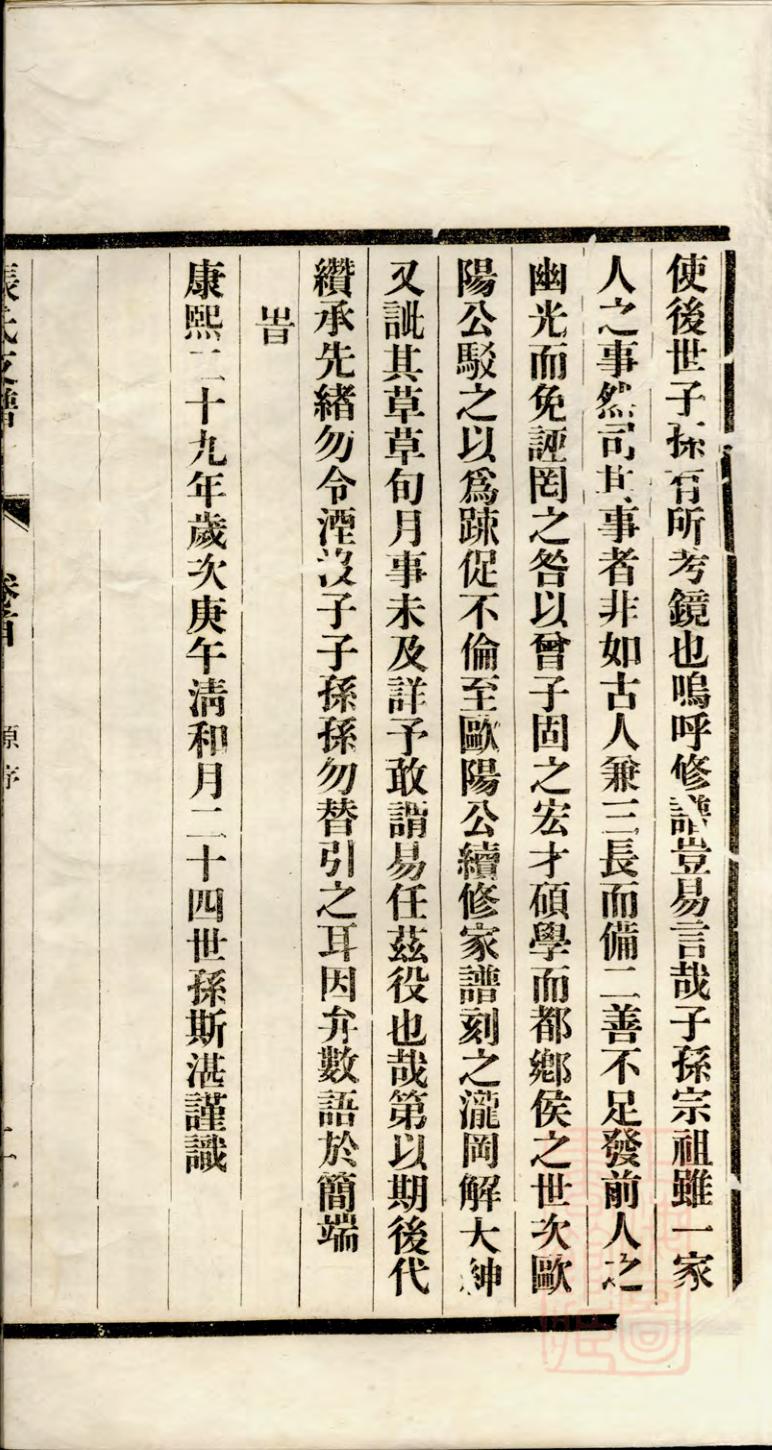 使後世子孫有所考鏡也嗚呼修譜豈易言哉子孫宗祖雖一家
人之事然司其事者非如古人兼三長而備二善不足發前人之
幽光而免誣罔之咎以曾子固之宏才碩學而都鄕侯之世次歐
陽公駁之以爲踈促不倫至歐陽公續修家譜刻之瀧岡解大紳
又訿其草草旬月事未及詳予敢謂易任茲役也哉第以期後代
纘承先緒勿令湮沒子子孫孫勿替引之耳因弁數語於簡端
旹
康熙二十九年歲次庚午淸和月二十四世孫斯湛謹識
張氏支譜
卷首
原序
二